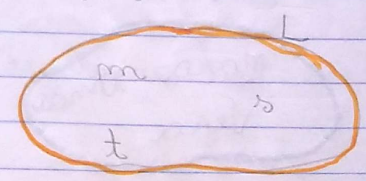 L
m
s
t